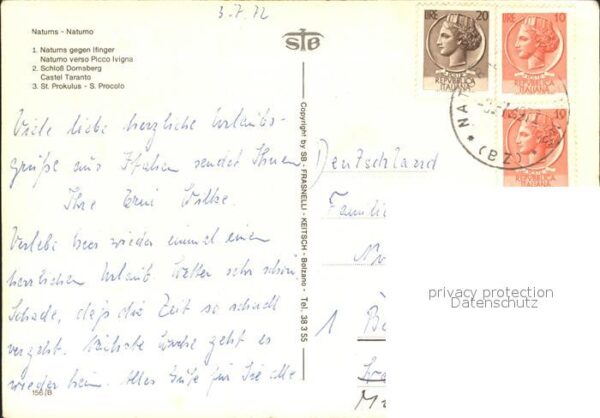 3.7.72
Naturns - Naturno
1. Naturns gegen Ifinger
Naturno verso Picco Ivigna
2. Schloß Dornsberg
Castel Taranto
3. St. Prokulus - S. Procolo
STB
LIRE 20
LIRE 10
LIRE 10
REPVBBLICA
ITALIANA
REPVBBLICA
ITALIANA
REPVBBLICA
ITALIANA
(BZ)
Viele liebe herzliche Urlaubs-
grüße aus Italien sendet Ihnen
Ihre Erni Wilke.
Verlebe hier wieder einmal einen
herrlichen Urlaub. Wetter sehr schön.
Schade, daß die Zeit so schnell
vergeht. Nächste Woche geht es
wieder heim. Alles Gute für Sie alle
156/B
Copyright by SB - FRASNELLI - KEITSCH - Bolzano - Tel. 38 3 55
Deutschland
Familie
1 Be
privacy protection
Datenschutz